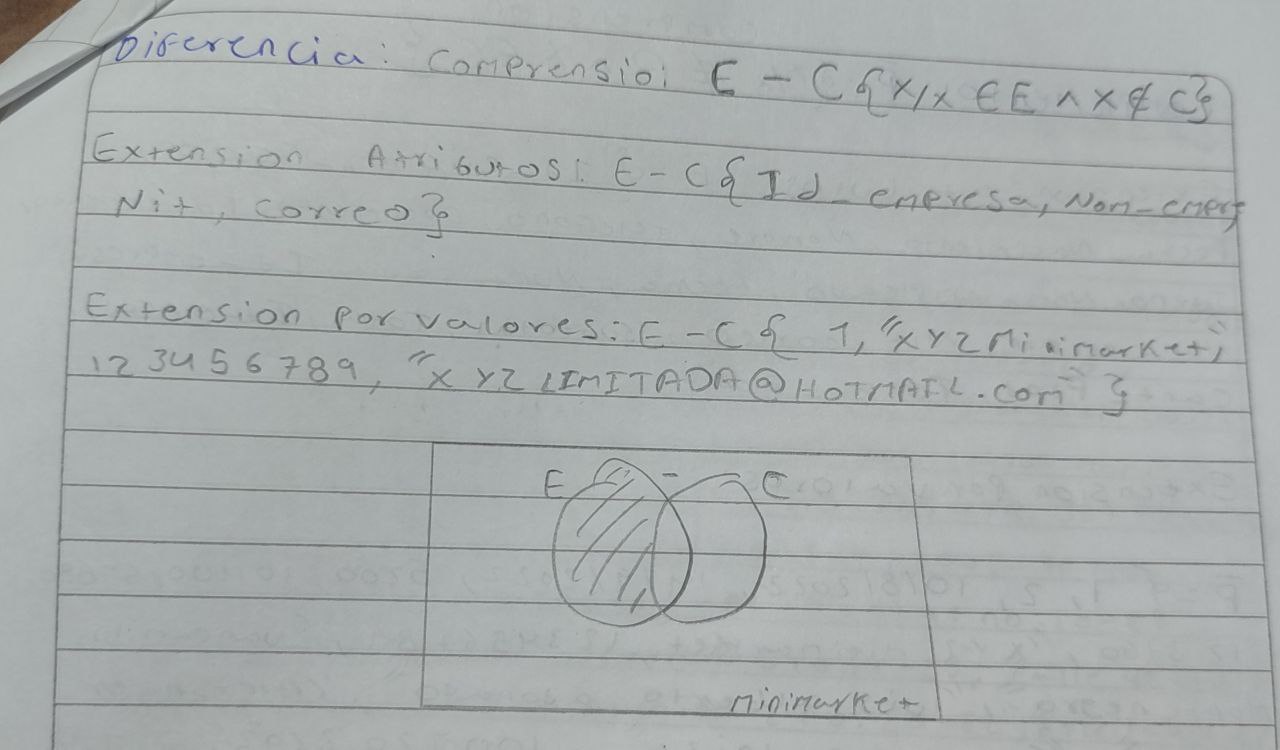 Diferencia: Comprensio: E - C{x/x ∈ E ∧ x ∉ C}
Extension Atributos: E-C{Id_empresa, Nom-empr,
Nit, correo}
Extension por valores: E-C{ 1, "XYZ Minimarket",
123456789, "XYZLIMITADA@HOTMAIL.com" }
E - C
Minimarket